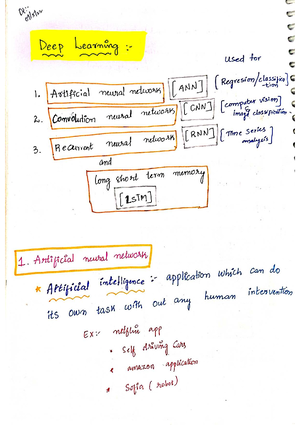 Deep Learning :-
Used for
1. Artificial neural network [ANN] [Regression/classification]
2. Convolution neural network [CNN] [computer vision/ Image classification]
3. Recurrent neural network [RNN] [Time Series analysis]
and
long short term memory
[LSTM]
1. Artificial neural network
* Artificial intelligence :- application which can do
its own task with out any human intervention
Ex:- netflix app
• Self driving Cars
• amazon application
• Sofia (robot)